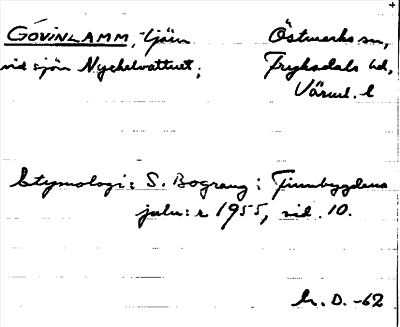 GÓVINLAMM, tjärn Östmarks sn,
vid sjön Nyckelvattnet; Fryksdals hd,
Värml. l
Etymologi: S. Bograng: Finnbygdens
julnr 1955, sid. 10.
D. -62